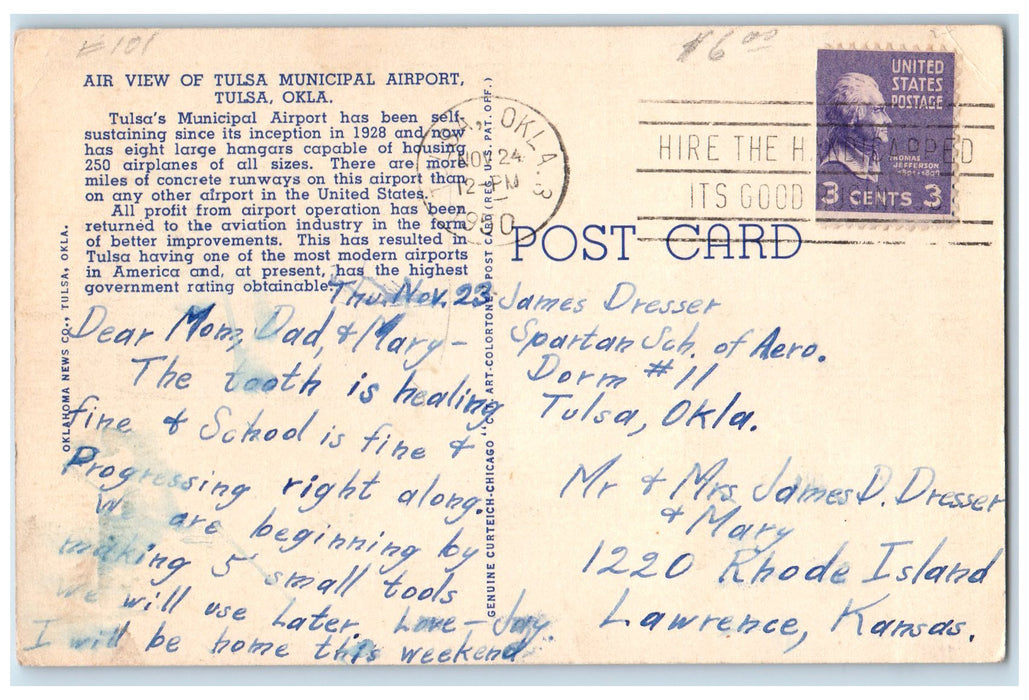 #101
$6.00
AIR VIEW OF TULSA MUNICIPAL AIRPORT,
TULSA, OKLA.
Tulsa's Municipal Airport has been self-
sustaining since its inception in 1928 and now
has eight large hangars capable of housing
250 airplanes of all sizes. There are more
miles of concrete runways on this airport than
on any other airport in the United States.
All profit from airport operation has been
returned to the aviation industry in the form
of better improvements. This has resulted in
Tulsa having one of the most modern airports
in America and, at present, has the highest
government rating obtainable.
OKLAHOMA NEWS CO., TULSA, OKLA.
GENUINE CURTEICH-CHICAGO "C.T. ART-COLORTONE" POST CARD (REG. U.S. PAT. OFF.)
TULSA, OKLA. 3
NOV 24
12-PM
1950
HIRE THE HANDICAPPED
ITS GOOD
UNITED
STATES
POSTAGE
THOMAS
JEFFERSON
1801-1809
3 CENTS 3
POST CARD
Thu. Nov. 23
Dear Mom, Dad, & Mary-
The tooth is healing
fine & School is fine &
Progressing right along.
We are beginning by
making 5 small tools
we will use later. Love-Jay.
I will be home this weekend
James Dresser
Spartan Sch. of Aero.
Dorm #11
Tulsa, Okla.
Mr & Mrs James D. Dresser
& Mary
1220 Rhode Island
Lawrence, Kansas.